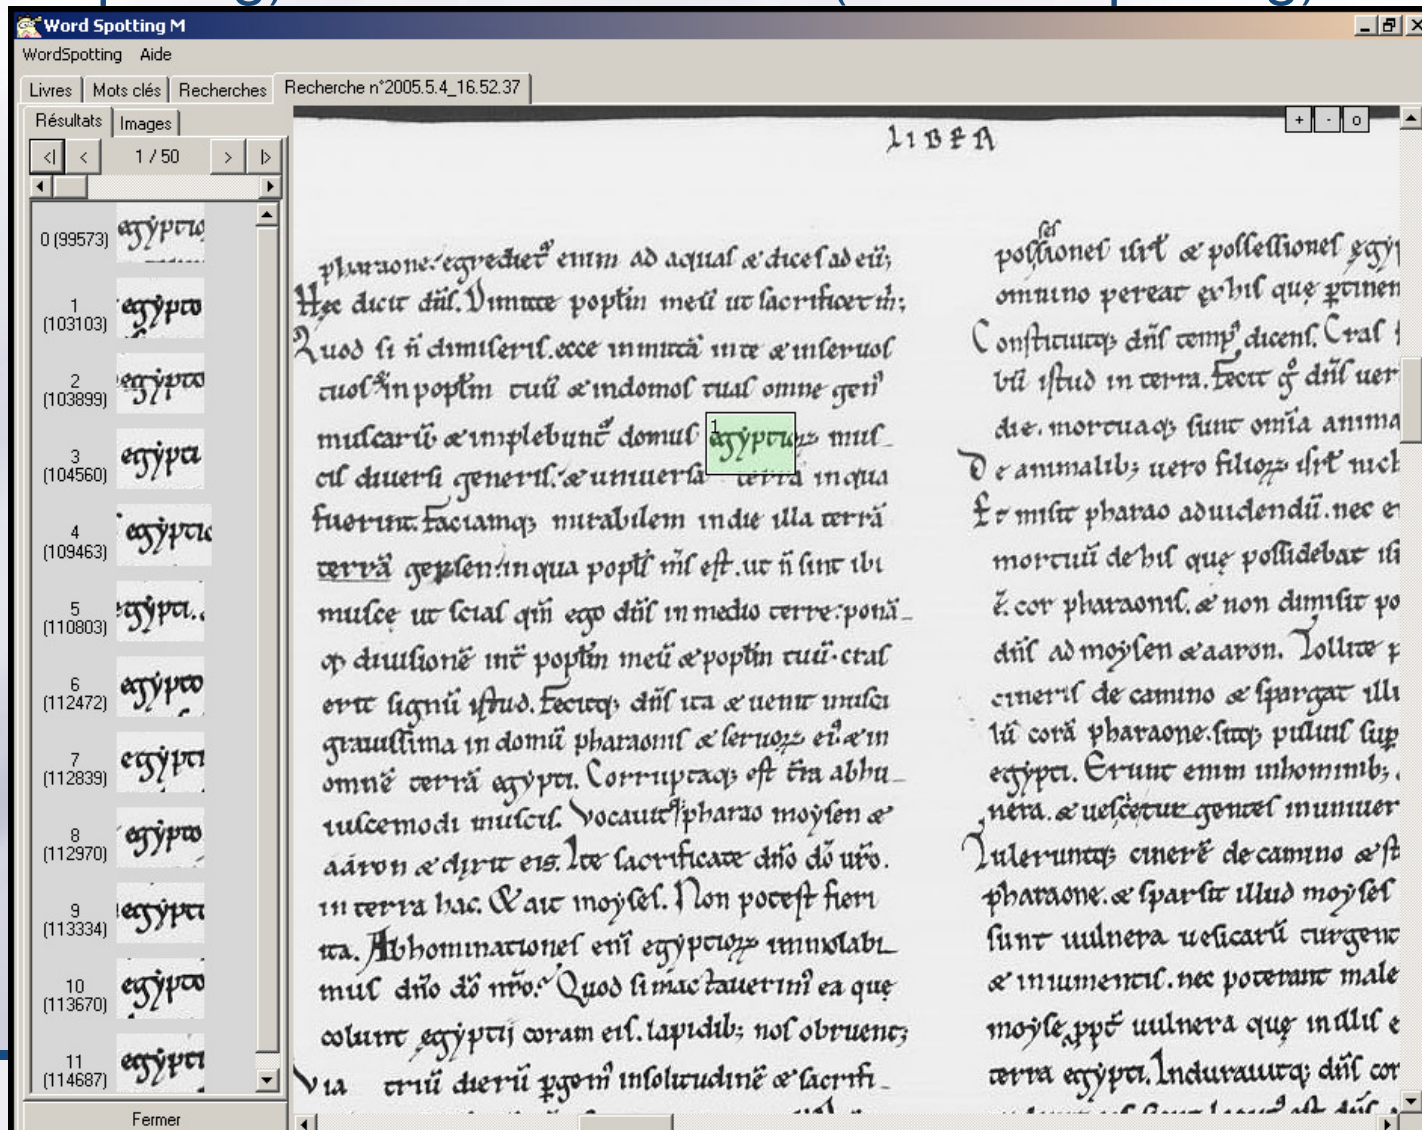 Word Spotting M
WordSpotting Aide
Livres Mots clés Recherches Recherche n°2005.5.4_16.52.37
Résultats Images
<| < 1 / 50 > |>
0 (99573) egẏptio
1 (103103) egẏpto
2 (103899) egẏpto
3 (104560) egẏpti
4 (109463) egẏptio
5 (110803) egẏpti.
6 (112472) egẏpto
7 (112839) egẏpti
8 (112970) egẏpto
9 (113334) egẏpti
10 (113670) egẏpto
11 (114687) egẏpti
Fermer
+ - o
LIBER
pharaone. egrediet᷑ enim ad aquaſ & diceſ ad eū;
Hęc dicit dn̄ſ. Dimitte popl̄m meū ut ſacrificet m̄;
Quod ſi n̄ dimiſeriſ. ecce inmittā in te & in ſeruoſ
tuoſ & in popl̄m tuū & in domoſ tuaſ omne gen᷒
muſcarū & implebunt᷑ domuſ 1 egẏptioꝝ muſ_
ciſ diuerſi generiſ. & uniuerſa terra in qua
fuerint. Faciamq; mirabilem in die illa terrā
terrā geſſen. in qua popl̄ſ m̄ſ eſt. ut n̄ ſint ibi
muſcę ut ſciaſ qm̄ ego dn̄ſ in medio terre. ponā_
q; diuiſionē int̄ popl̄m meū & popl̄m tuū. craſ
erit ſignū iſtud. Fecitq; dn̄ſ ita & uenit muſca
grauiſſima in domū pharaoniſ & ſeruoꝝ ei᷒ & in
omnē terrā egẏpti. Corruptaq; eſt t̄ra ab hu_
iuſcemodi muſciſ. Vocauit pharao moẏſen &
aaron & dixit eis. Ite ſacrificate dn̄o dō ur̄o.
in terra hac. & ait moẏſeſ. Non poteſt fieri
ita. Abhominationeſ eni̅ egẏptioꝝ immolabi_
muſ dn̄o dō nr̄o. Quod ſi mactauerim᷒ ea quę
colunt egẏptij coram eiſ. lapidib; noſ obruent;
Via triū dierū ꝑgem᷒ in ſolitudinē & ſacrifi_
ſeſ
poſſioneſ iſrl̄ & poſſeſſioneſ egẏp
omnino pereat ex hiſ quę ꝑtinen
Conſtituitq; dn̄ſ temp᷒ dicenſ. Craſ
bū iſtud in terra. Fecit g̊ dn̄ſ uer
die. mortuaq; ſunt omīa anima
De animalib; uero filioꝝ iſrl̄ nich
Et miſit pharao ad uidendū. nec e
mortuū de hiſ quę poſſidebat iſ
ē cor pharaoniſ. & non dimiſit po
dn̄ſ ad moẏſen & aaron. Tollite
cineriſ de camino & ſpargat illu
lū corā pharaone. ſitq; puluiſ ſup
egẏpti. Erunt enim in hominib;
nera. & ueſcę genteſ in uniuer
Tuleruntq; cinerē de camino & ſt
pharaone. & ſparſit illud moẏſeſ
ſunt uulnera ueſicarū turgent
& in iumentiſ. nec poterant male
moẏſe ꝓpt̄ uulnera quę in illiſ e
terra egẏpti. Indurauitq; dn̄ſ cor